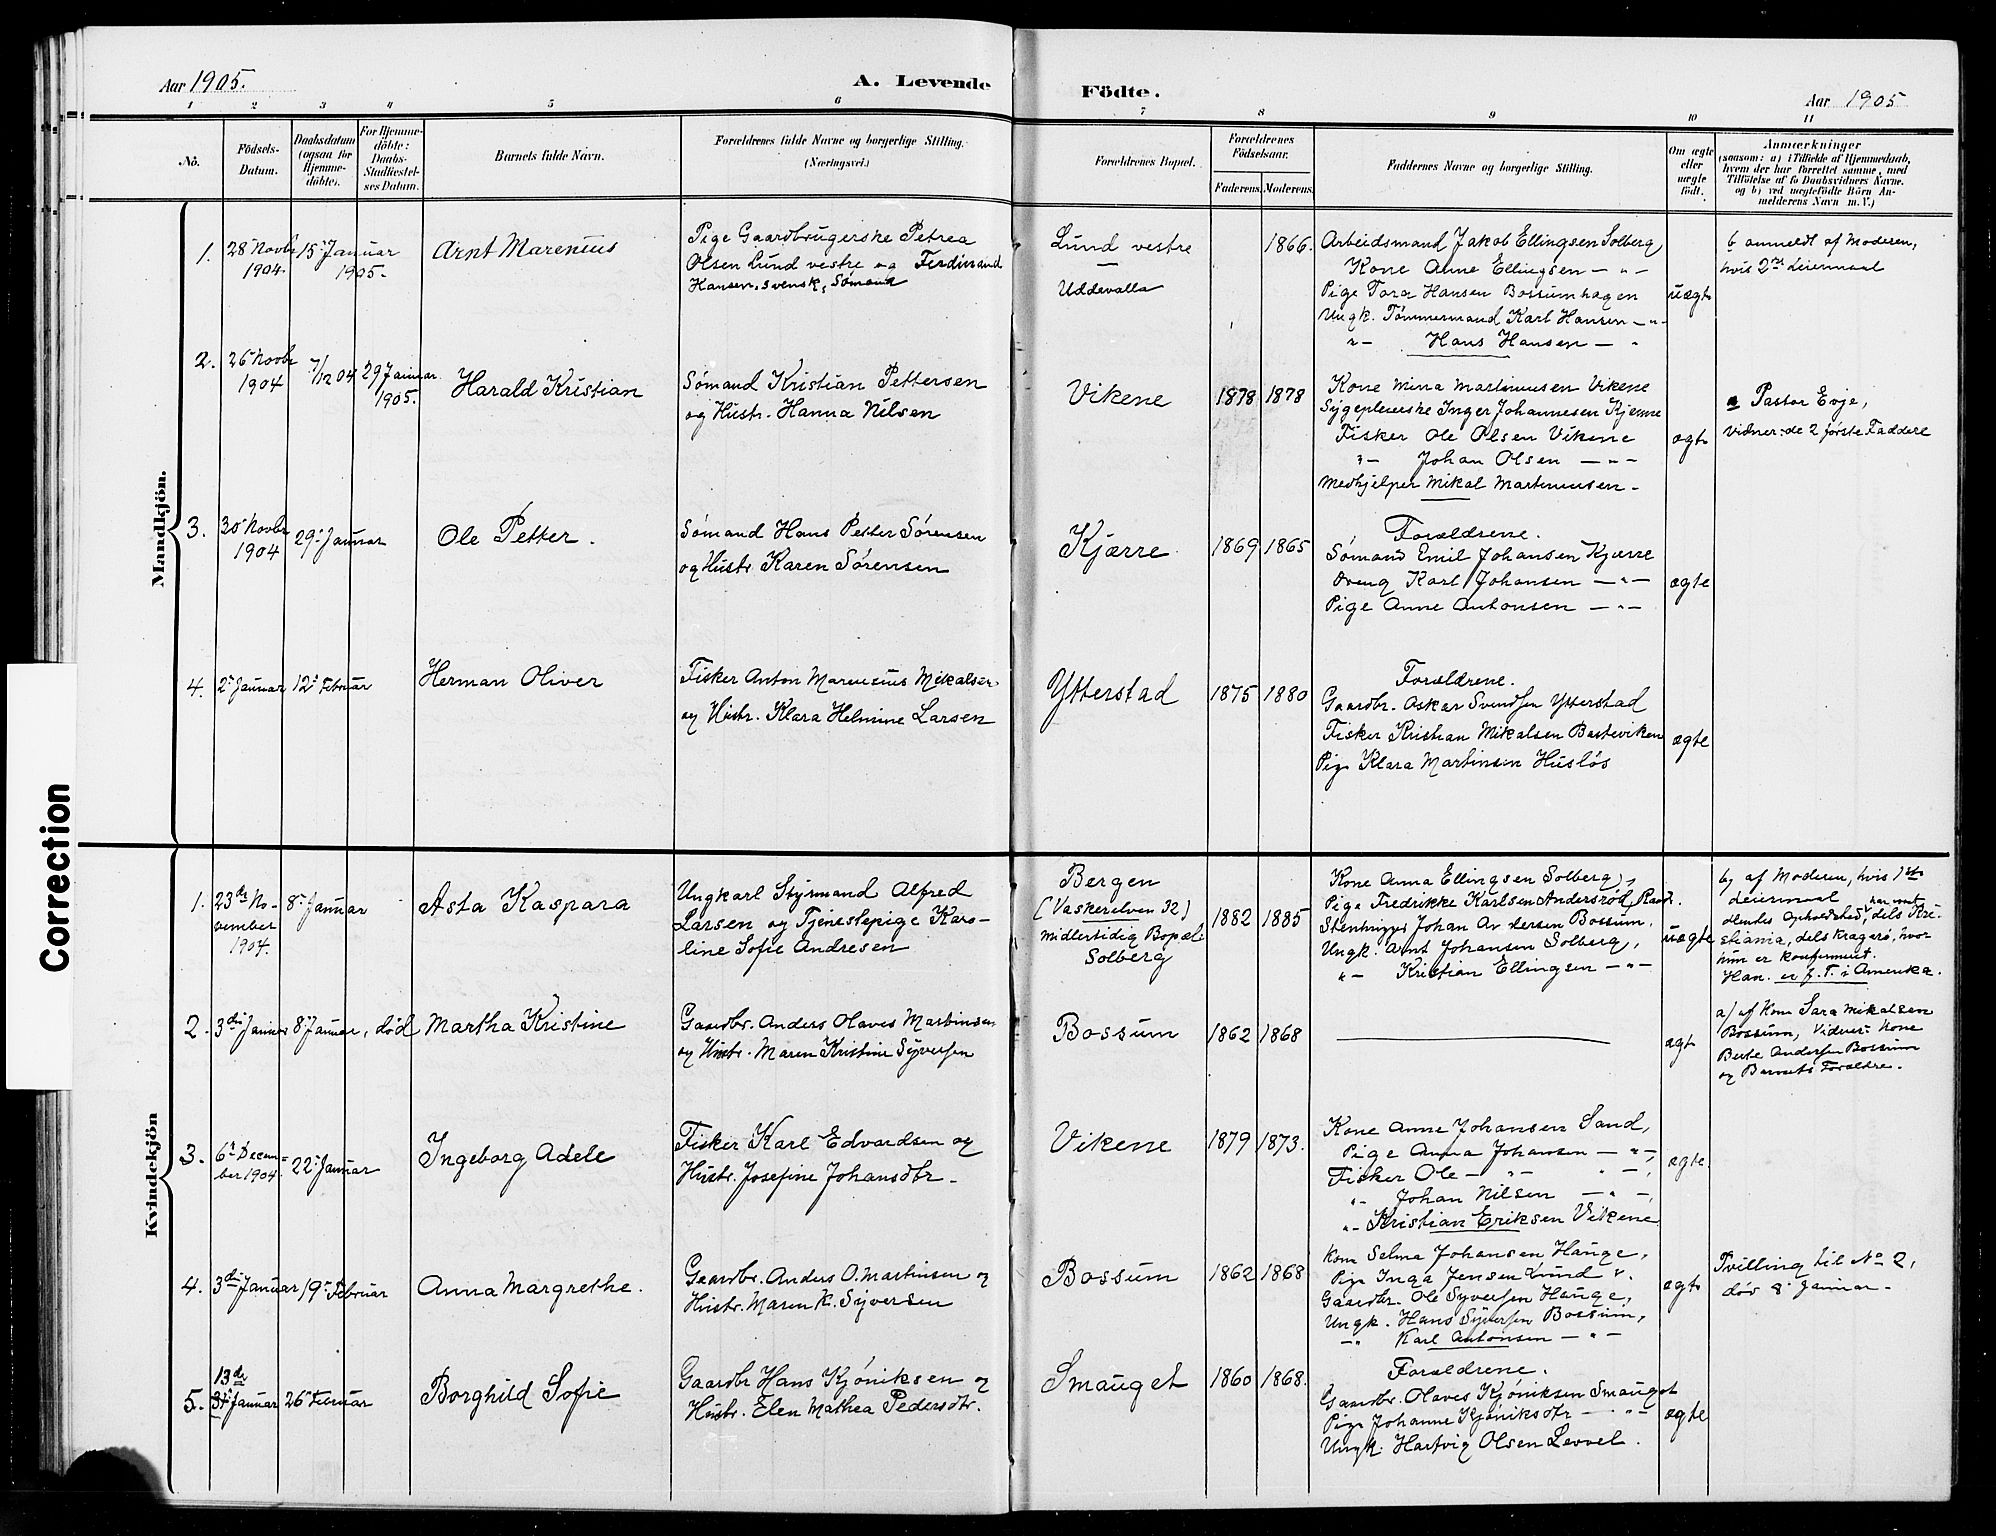 Aar 1905.
A. Levende
Födte.
Aar 1905
1 2 3 4 5 6 7 8 9 10 11
No.
Födsels-
Datum.
Daabsdatum
(ogsaa for
Hjemme-
döbte).
For Hjemme-
döbte:
Daabs-
Stadfæstel-
ses Datum.
Barnets fulde Navn.
Forældrenes fulde Navne og borgerlige Stilling.
(Næringsvei.)
Forældrenes Bopæl.
Forældrenes
Födselsaar.
Faderens. Moderens.
Faddernes Navne og borgerlige Stilling.
Om ægte
eller
uægte
födt.
Anmærkninger
(saasom: a) i Tilfælde af Hjemmedaab,
hvem der har forrettet samme, med
Tilföielse af to Daabsvidners Navne.
og b) ved uægtefödte Börn An-
melderens Navn m. V.)
Mandkjön.
1.
28 Novbr
1904.
15 Januar
1905.
Arnt Marenius
Pige Gaardbrugerske Petrea
Olsen Lund vestre og Ferdinand
Hansen, svensk, Sømand
Lund vestre
—
Uddevalla
1866.
Arbeidsmand Jakob Ellingsen Solberg
Kone Anne Ellingsen — " —
Pige Tora Hansen Bossumhagen
Ungk. Tømmermand Karl Hansen — " -
" - Hans Hansen — "
uægte
b anmeldt af Moderen,
hvis 2det Leiermaal
2.
26 Novbr
1904
7/12 04
29 Januar
1905.
Harald Kristian
Sømand Kristian Pettersen
og Hustr. Hanna Nilsen
Vikene
1878 1878
Kone Mina Martinusen Vikene
Sygepleierske Inger Johannesen Kjærre
Fisker Ole Olsen Vikene
" - Johan Olsen — " -
Medhjelper Mikal Martinusen -
ægte
a Pastor Evje,
Vidner: de 2 første Faddere
3.
30 Novbr
1904
29 Januar
Ole Petter.
Sømand Hans Petter Sørensen
og Hustr. Karen Sørensen
Kjærre
1869 1865
Forældrene.
Sømand Emil Johansen Kjærre
Dreng Karl Johansen — " —
Pige Anne Antonsen — " —
ægte
4.
2 Januar
12 Februar
Herman Oliver
Fisker Anton Marensius Mikalsen
og Hustr. Klara Helmine Larsen
Ytterstad
1875 1880
Forældrene.
Gaardbr. Askar Svendsen Ytterstad
Fisker Kristian Mikalsen Basteviken
Pige Klara Martinsen Husløs
ægte
Correction
Kvindekjön
1.
23de No-
vember
1904.
8 Januar
Asta Kaspara
Ungkarl Styrmand Alfred
Larsen og Tjenestepige Karo-
line Sofie Andresen
Bergen
(Vaskerelven 32)
midlertidig Bopæl
Solberg
1882 1885
Kone Anna Ellingsen Solberg,
Pige Fredrikke Karlsen Andersrød,
Stenhugger Johan Andersen Bossum.
Ungk. Arnt Johansen Solberg,
" - Kristian Ellingsen — " —
uægte
b, af Moderen, hvis 1ste
Leiermaal
dendes Opholdsted har vært dels Kri-
stiania, dels Kragerø, hvor-
hun er konfirmeret.
Han er f. T. i Amerika.
2.
3die Januar
8 Januar, død
Martha Kristine
Gaardbr. Anders Olaves Martinsen
og Hustr. Maren Kristine Syversen
Bossum
1862 1868
ægte
a) af Kone Sara Mikalsen
Bossum, Vidner: Kone
Berte Andersen Bossum
og Barnets Forældre.
3.
6te Decem-
ber 1904.
22 Januar
Ingeborg Adele
Fisker Karl Edvardsen og
Hustr. Josefine Johansdtr. -
Vikene
1879 1873.
Kone Anne Johansen Sand,
Pige Anna Johansen — " —,
Fisker Ole — " - " —,
" - Johan Nilsen — " —,
" - Kristian Eriksen Vikene
ægte.
4.
3die Januar
19 Februar
Anna Margrethe.
Gaardbr. Anders O. Martinsen og
Hustr. Maren K. Syversen
Bossum
1862 1868
Kone Selma Johansen Hauge,
Pige Inga Jensen Lund v.
Gaardbr. Ole Syversen Hauge,
Ungk. Hans Syversen Bossum,
— " Karl Antonsen — " —
ægte
Tvilling til No 2,
død 8 Januar -
5.
13de
31 Januar
26 Februar
Borghild Sofie
Gaardbr Hans Kjøniksen og
Hustr. Elen Mathea Pedersdtr.
Smauget
1860 1868.
Forældrene.
Gaardbr. Olaves Kjøniksen Smauget
Pige Johanne Kjøniksdtr — " —
Ungk. Hartvig Olsen Levvel.
ægte